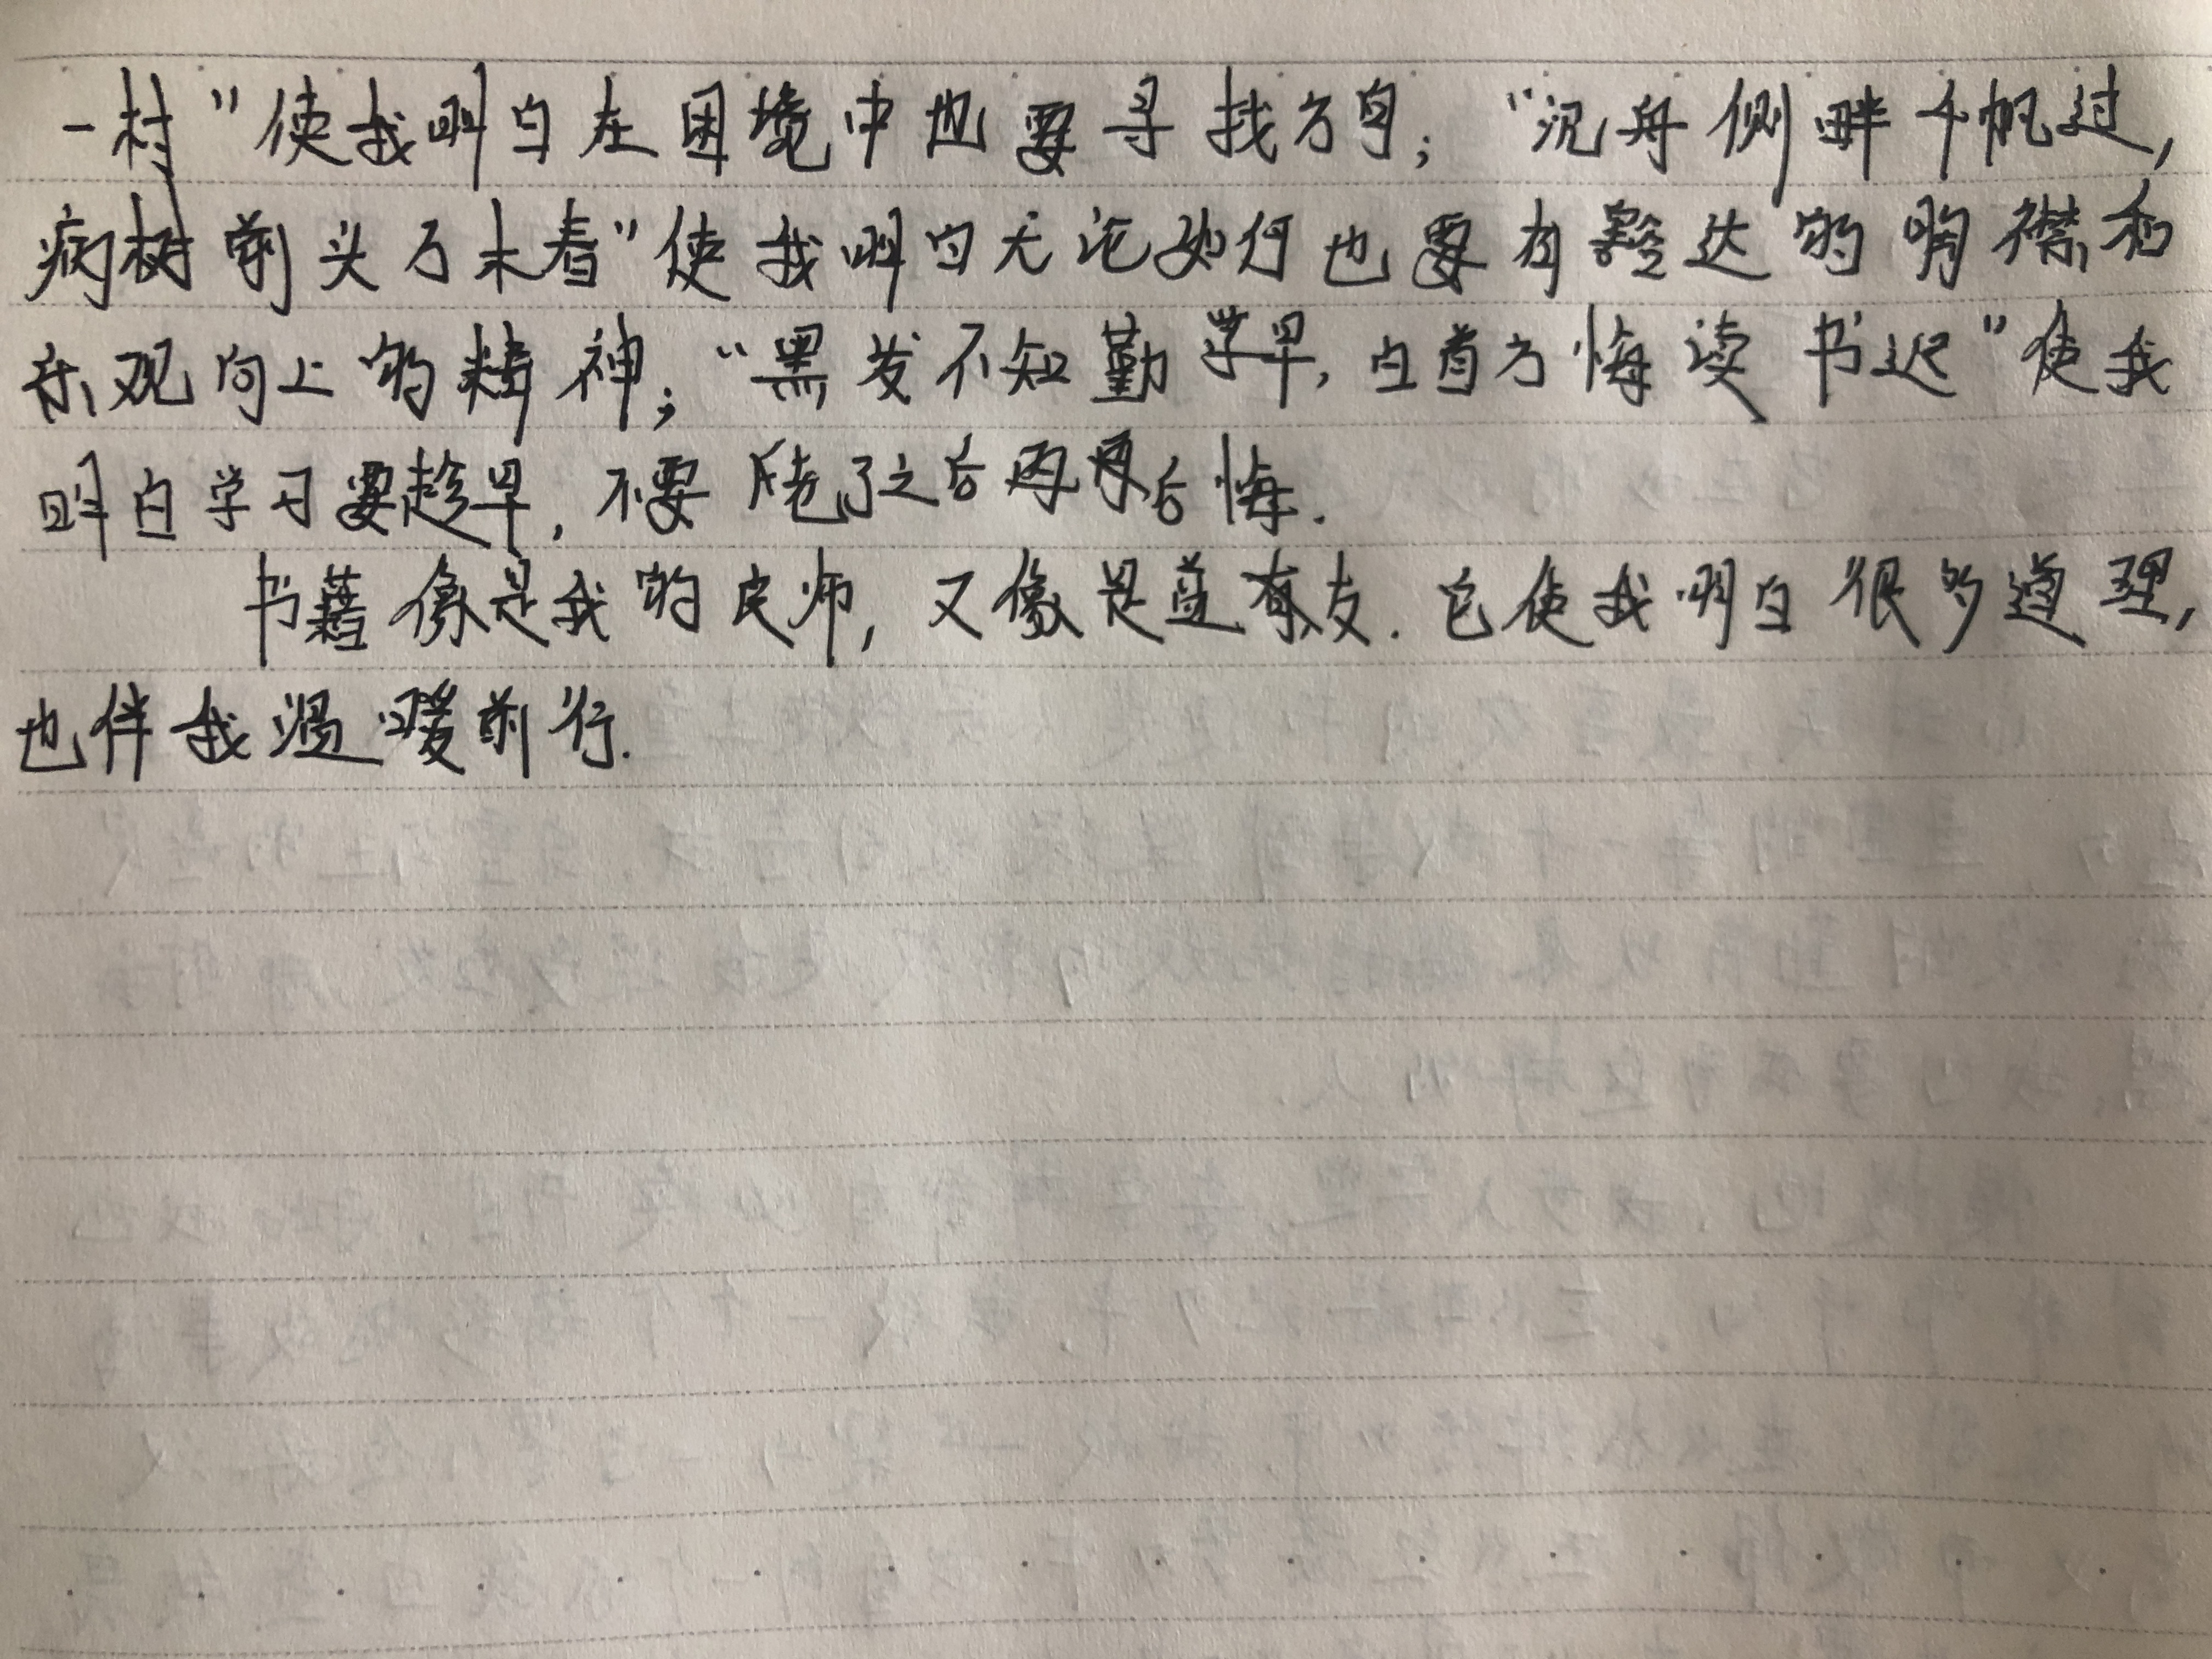 一村”使我明白在困境中也要寻找方向；“沉舟侧畔千帆过，
病树前头万木春”使我明白无论如何也要有豁达的胸襟和
乐观向上的精神；“黑发不知勤学早，白首方悔读书迟”使我
明白学习要趁早，不要晚了之后再后悔.
书籍像是我的良师，又像是益友.它使我明白很多道理，
也伴我温暖前行.